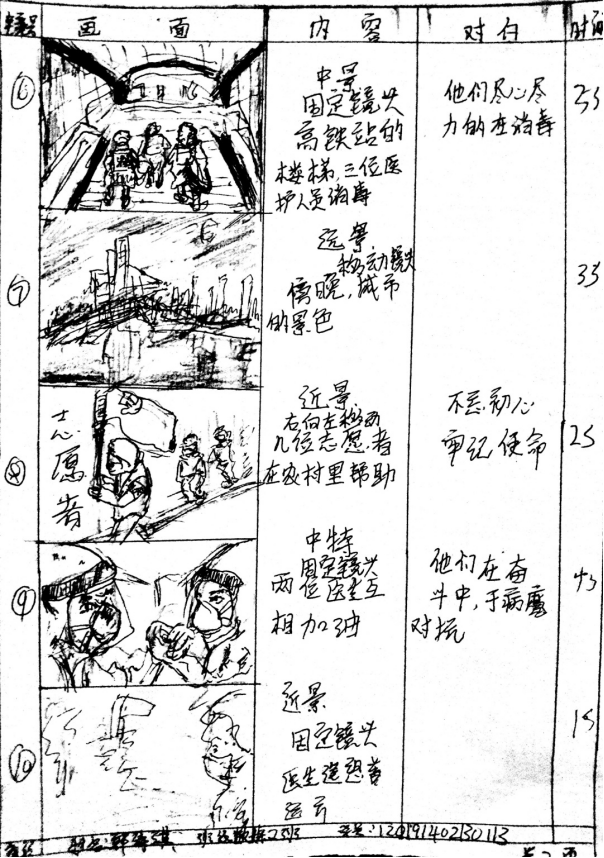 镜号 画面 内容 对白 时间
⑥
中景
固定镜头
高铁站的
楼梯,三位医
护人员消毒
他们尽心尽
力的在消毒
2S
⑦
远景
移动镜头
傍晚,城市
的景色
3S
⑧
志
愿
者
近景
右向左移动
几位志愿者
在农村里帮助
不忘初心
牢记使命
2S
⑨
中特
固定镜头
两位医生互
相加油
他们在奋
斗中,于病魔
对抗
4S
⑩
近景
固定镜头
医生
1S